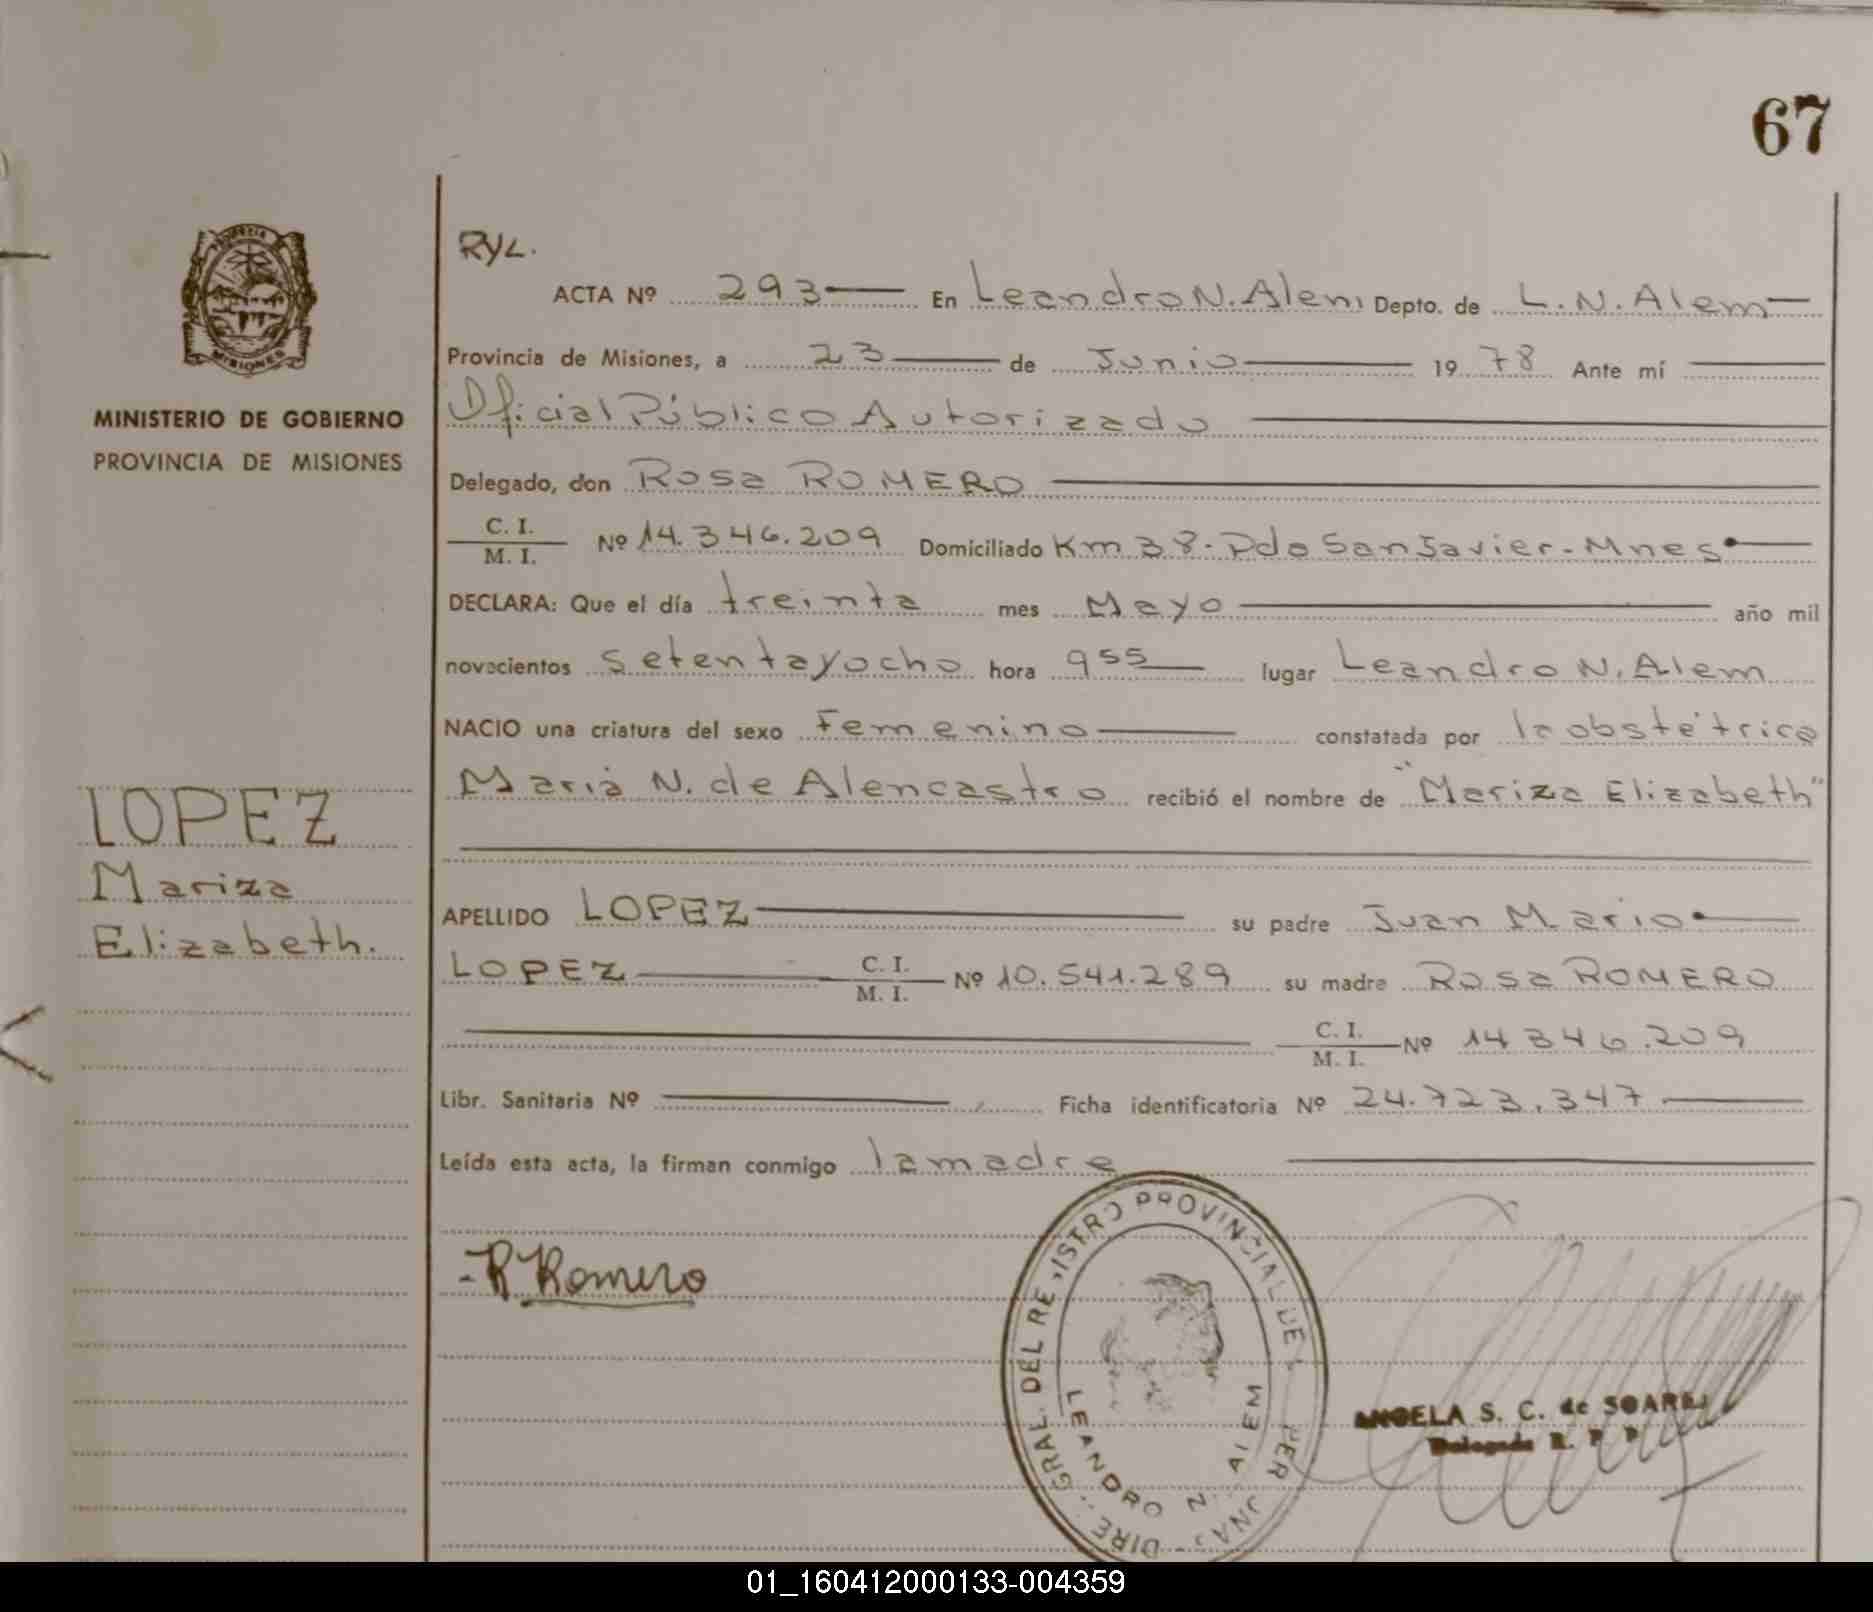 67
RYL.
ACTA Nº 293 En Leandro N. Alem Depto. de L. N. Alem
Provincia de Misiones, a 23 de Junio 1978 Ante mí
Oficial Público Autorizado
Delegado, don Rosa ROMERO
C. I.
M. I. Nº 14.346.209 Domiciliado Km 38 - Pdo San Javier - Mnes
DECLARA: Que el día treinta mes Mayo año mil
novecientos setenta y ocho hora 9 55 lugar Leandro N. Alem
NACIO una criatura del sexo Femenino constatada por la obstétrica
Maria N. de Alencastro recibió el nombre de "Mariza Elizabeth"
APELLIDO LOPEZ su padre Juan Mario
LOPEZ C. I. M. I. Nº 10.541.289 su madre Rosa ROMERO
C. I. M. I. Nº 14 346.209
Libr. Sanitaria Nº Ficha identificatoria Nº 24.723.347
Leída esta acta, la firman conmigo la madre
R Romero
PROVINCIA DE
MISIONES
MINISTERIO DE GOBIERNO
PROVINCIA DE MISIONES
LOPEZ
Mariza
Elizabeth.
GRAL. DEL RE ISTRO PROVINCIAL DE
LEANDRO N. ALEM
ANGELA S. C. de SOARES
Delegada R. P. P.
01_160412000133-004359